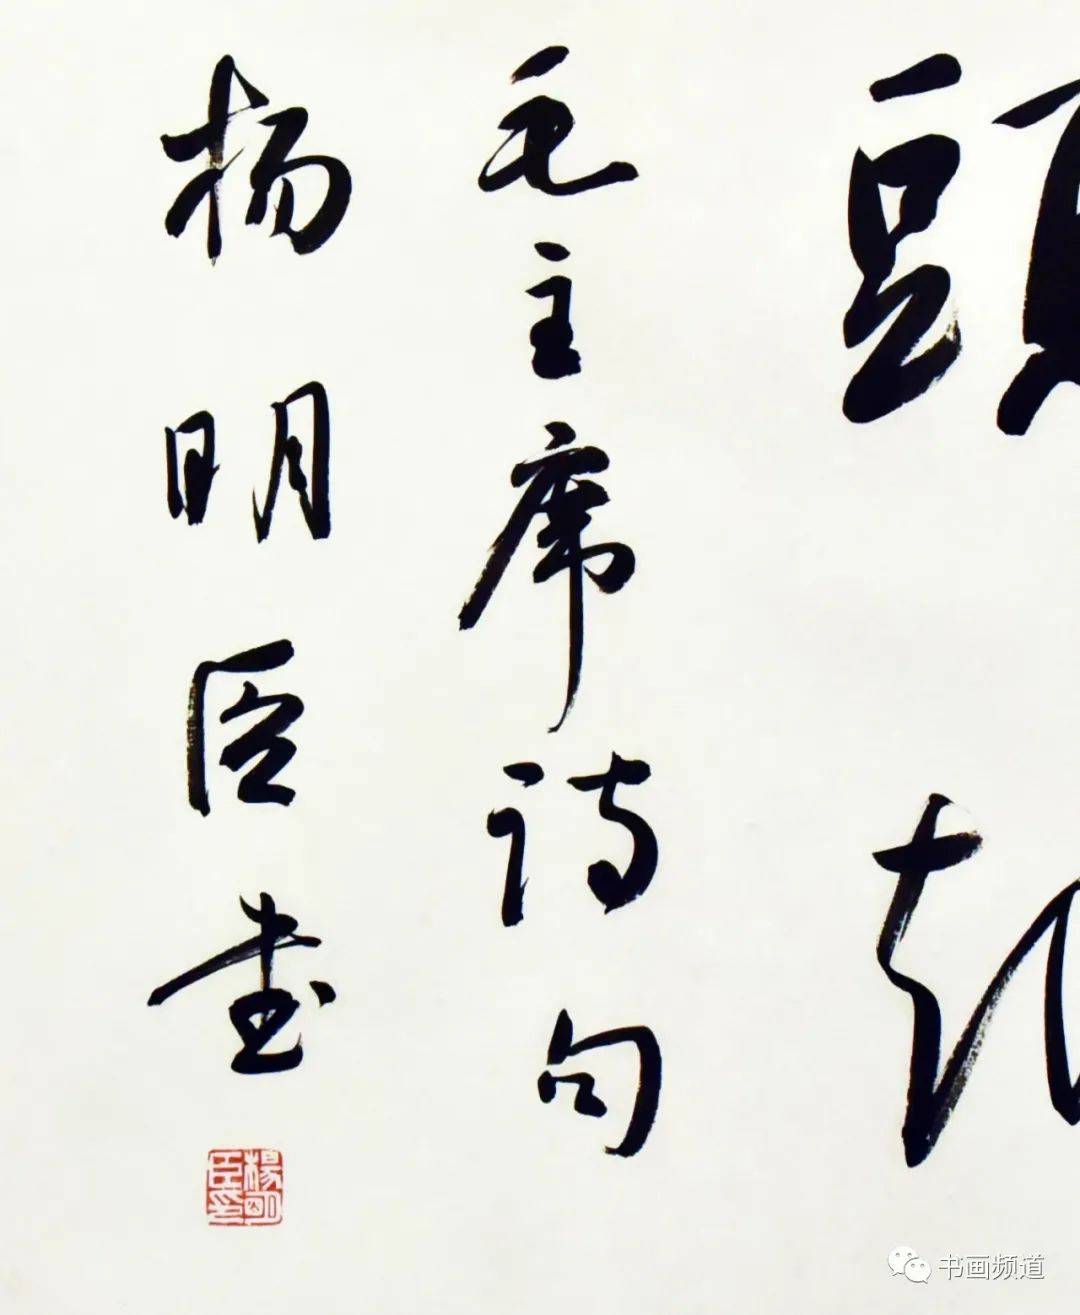 頭
毛主席诗句
杨明臣書
楊明臣印
书画频道